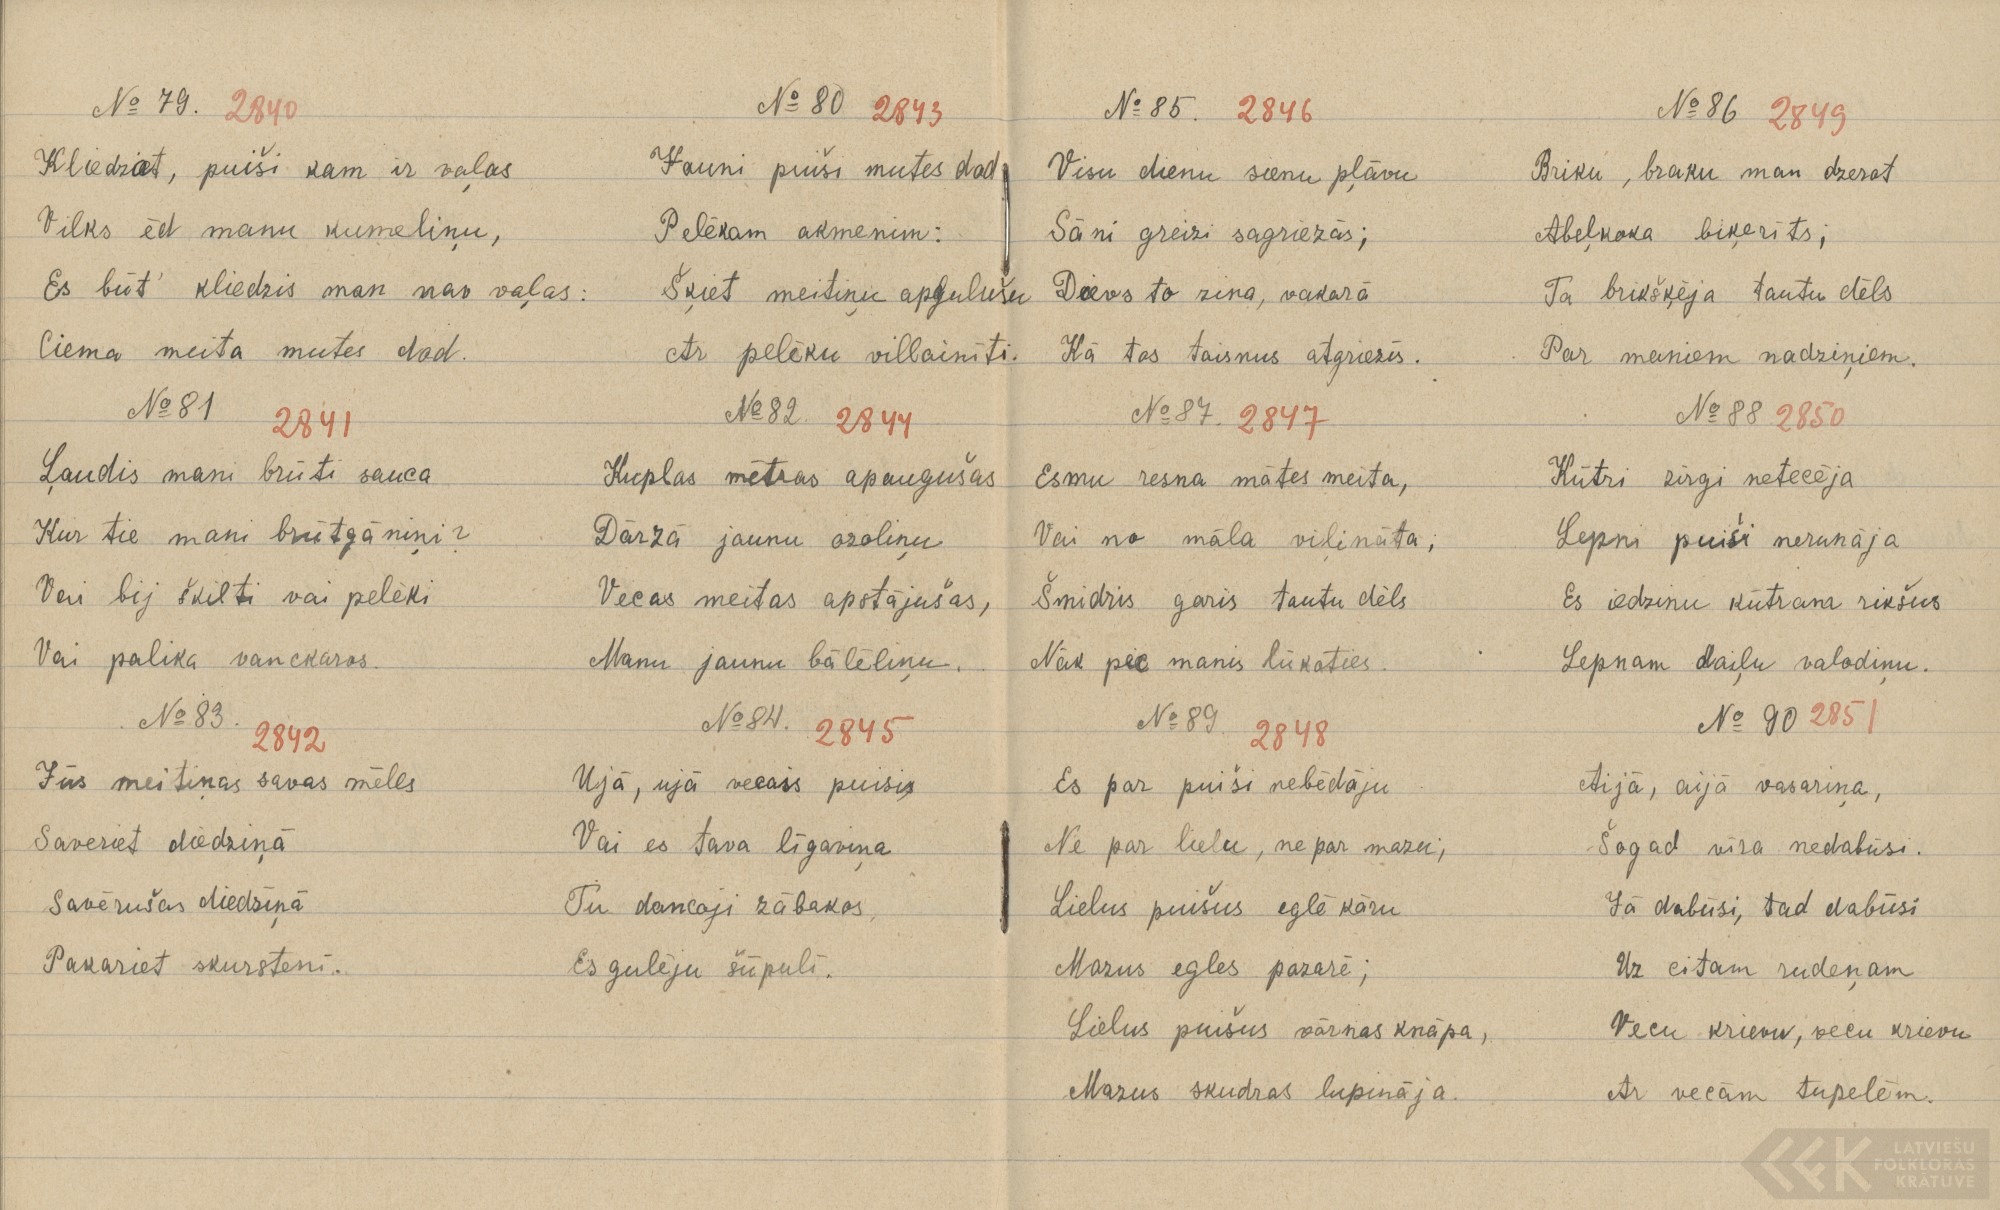 № 79. 2840
Kliedziet, puiši kam ir vaļas
Vilks ēd manu kumeliņu,
Es būt' kliedzis man nav vaļas:
Ciema meita mutes dod.
№ 81 2841
Ļaudis mani brūti sauca
Kur tie mani brūtgāniņi?
Vai bij šķilti vai pelēki
Vai palika vanckaros.
№ 83. 2842
Jūs meitiņas savas mēles
Saveriet diedziņā
Savērušas diedziņā
Pakariet skurstenī.
№ 80 2843
Jauni puiši mutes dod
Pelēkam akmenim:
Šķiet meitiņu apgulušu
Ar pelēku villainīti.
№ 82. 2844
Kuplas mētras apaugušas
Dārzā jaunu ozoliņu
Vecas meitas apstājušas,
Manu jaunu bālēliņu.
№ 84. 2845
Ujā, ujā vecais puisis
Vai es tava līgaviņa
Tu dancoji zābakos
Es gulēju šūpulī.
№ 85. 2846
Visu dienu sienu pļāvu
Sāni greizi sagriezās;
Dievs to zina, vakarā
Kā tos taisnus atgriezīs.
№ 87. 2847
Esmu resna mātes meita,
Vai no māla viļināta;
Šmidris garis tautu dēls
Nāk pēc manis lūkoties.
№ 89. 2848
Es par puiši nebēdāju
Ne par lielu, ne par mazu;
Lielus puišus eglē kāru
Mazus egles pazarē;
Lielus puišus vārnas knāpa,
Mazus skudras lupināja.
№ 86 2849
Briku, braku man dzerot
Abeļkoka biķerīts;
Tā brikšķēja tautu dēls
Par maniem nadziņiem.
№ 88 2850
Kūtri zirgi netecēja
Lepni puiši nerunāja
Es iedzinu kūtram rikšus
Lepnam daiļu valodiņu.
№ 90 2851
Aijā, aijā vasariņa,
Šogad vīra nedabūsi.
Jā dabūsi, tad dabūsi
Uz citam rudeņam
Vecu krievu, vecu krievu
Ar vecām tupelēm.
LATVIEŠU
FOLKLORAS
KRĀTUVE